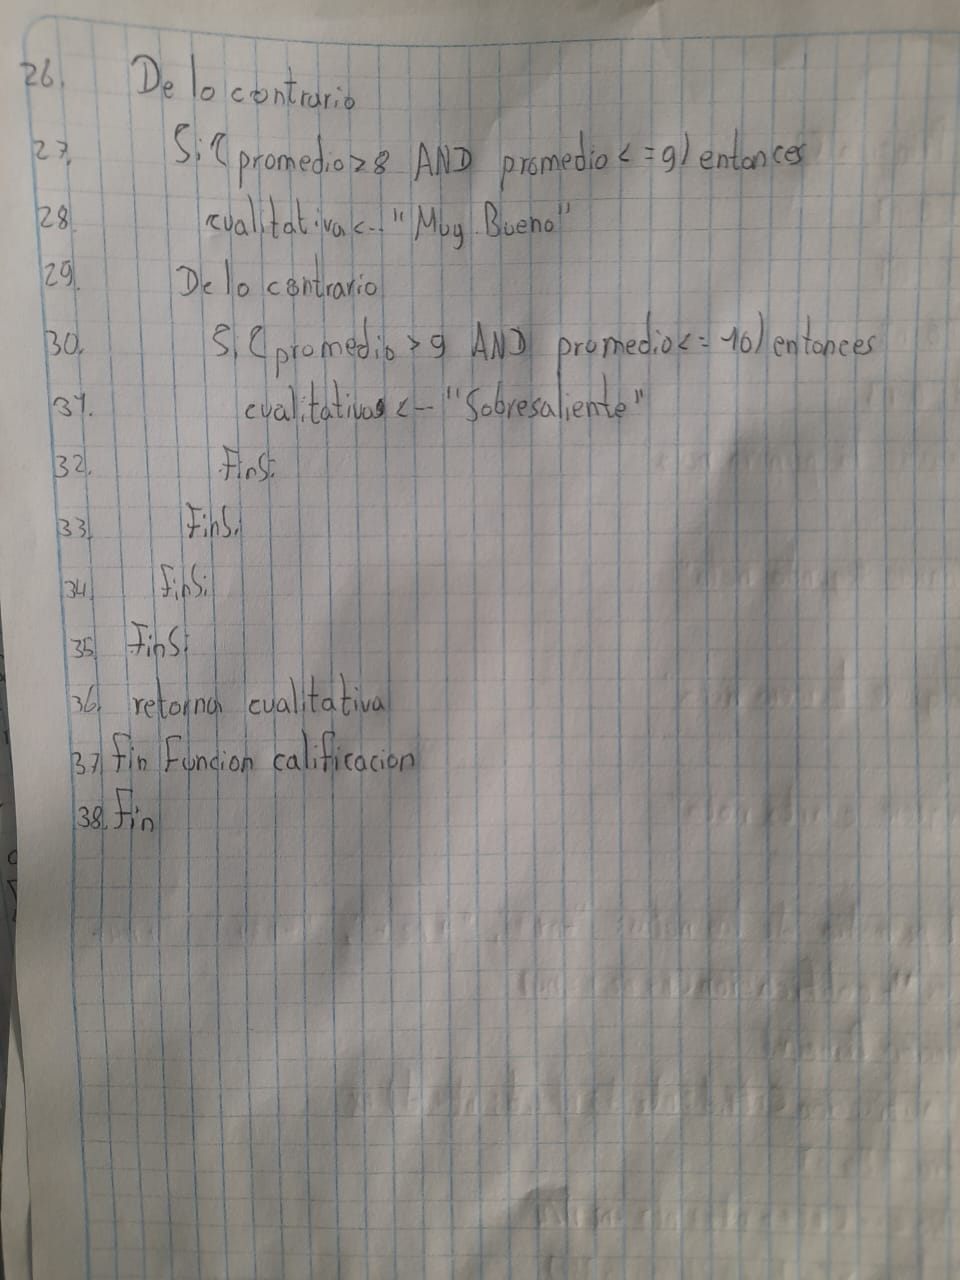 26. De lo contrario
27. Si (promedio > 8 AND promedio <= 9) entonces
28. cualitativa <- "Muy Bueno"
29. De lo contrario
30. Si (promedio > 9 AND promedio <= 10) entonces
31. cualitativa <- "Sobresaliente"
32. FinSi
33. FinSi
34. FinSi
35. FinSi
36. retorna cualitativa
37. Fin Funcion calificacion
38. Fin